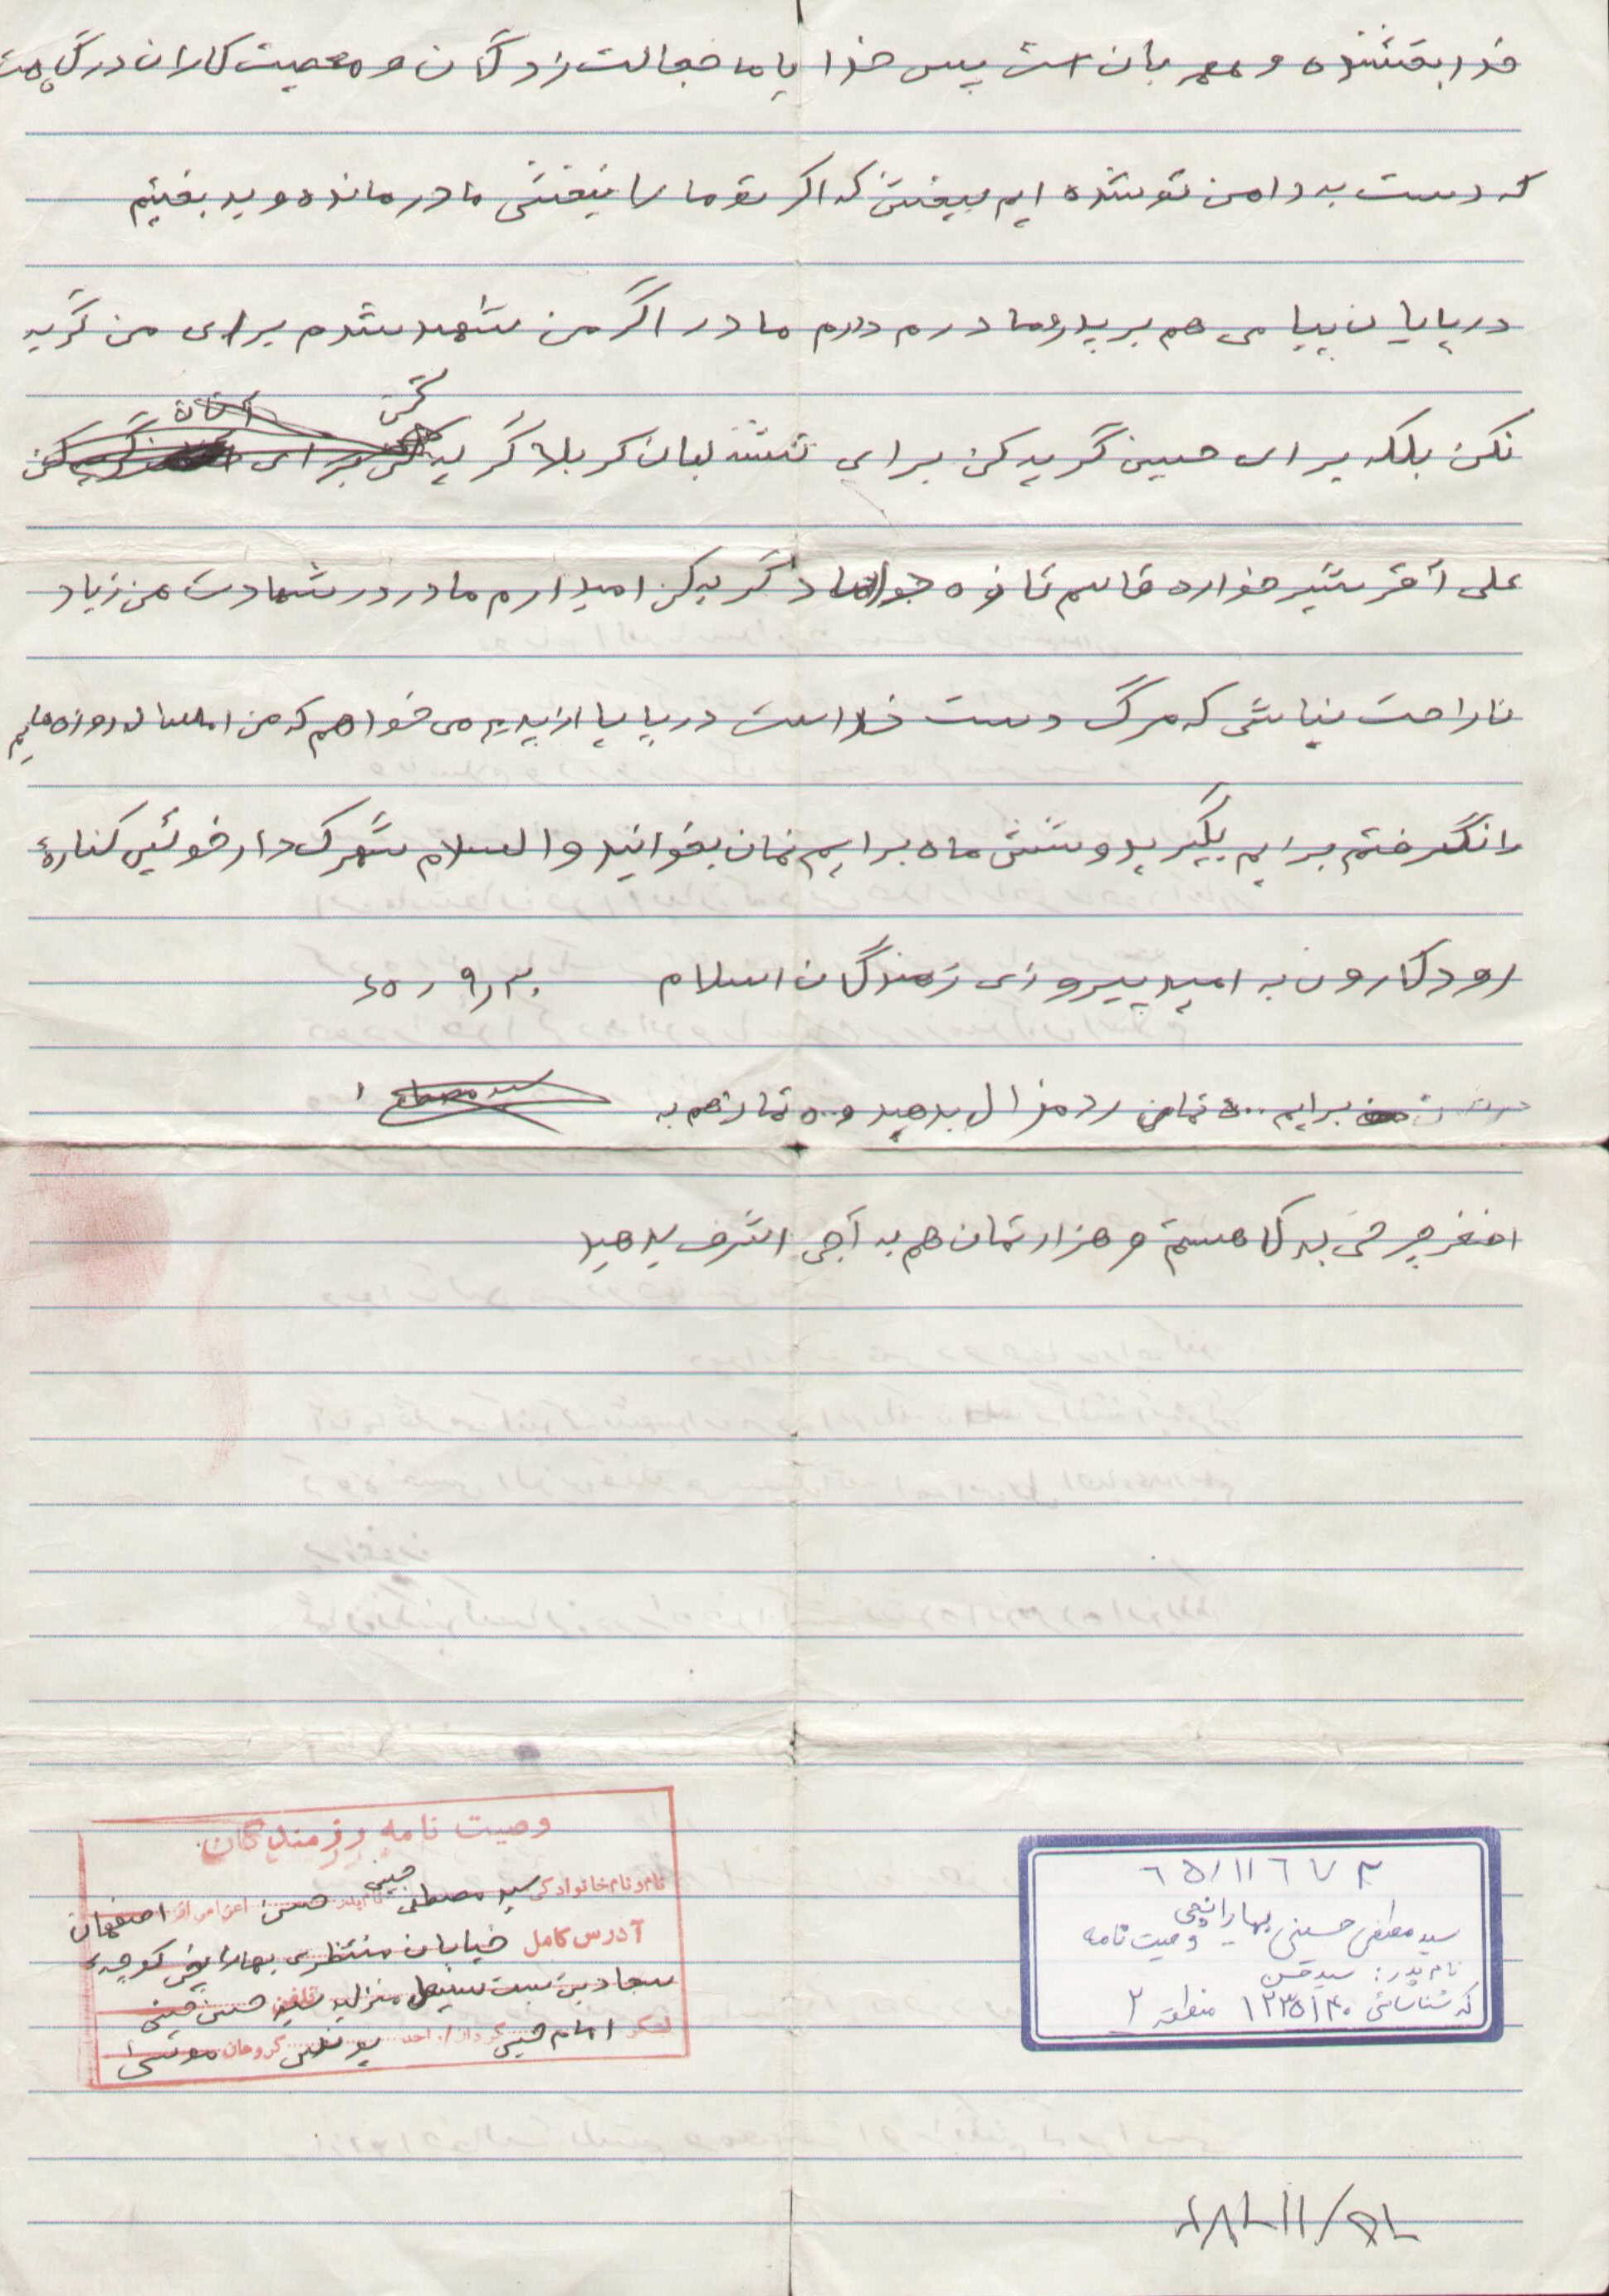 خدا بخشنده و مهربان است پس خدا یا ما خجالت زدگان و معصیت کاران درگاهت
که دست به دامن تو شده ایم ببخش که اگر تو ما را نبخشی ما درمانده و بدبختیم
در پایان پیامی هم بر پدر و مادرم دارم مادر اگر من شهید شدم برای من گریه
نکن بلکه برای حسین گریه کن برای تشنه لبان کربلا گریه کن برای
علی اقر شیر خواره قاسم تازه داماد گریه کن امیدارم مادر در شهادت من زیاد
ناراحت نباشی که مرگ دست خداست در پایا از پدرم می خواهم که من امسال روزه هایم
را نگرفتم برایم بگیرید و شش ماه برایم نماز بخوانید والسلام شهرک دارخوئین کنارۀ
رود کارون به امید پیروزی رزمندگان اسلام ۶۵٫۹٫۳۰
برایم ۵۰۰ تمان رد مزال بدهید و ۵۰۰ تمان هم به
سید مصطفی
اصغر چرخی بدکا هستم و هزار تمان هم به آجی اشرف بدهید
وصیت نامه رزمندگان
نام و نام خانوادگی سید مصطفی حسینی نام پدر حسن اعزامی از اصفهان
آدرس کامل خیابان منتظری بهارانچی کوچه
سجاد بن بست منزل سید حسن حسینی
لشکر امام حسین گردان/واحد یونس گروهان موسی
۶۵/۱۱۶۷۴
سید مصطفی حسینی بهارانچی
وصیت نامه
نام پدر: سید حسن
کد شناسائی ۱۲۳۵۱۴۰ منطقه ۲